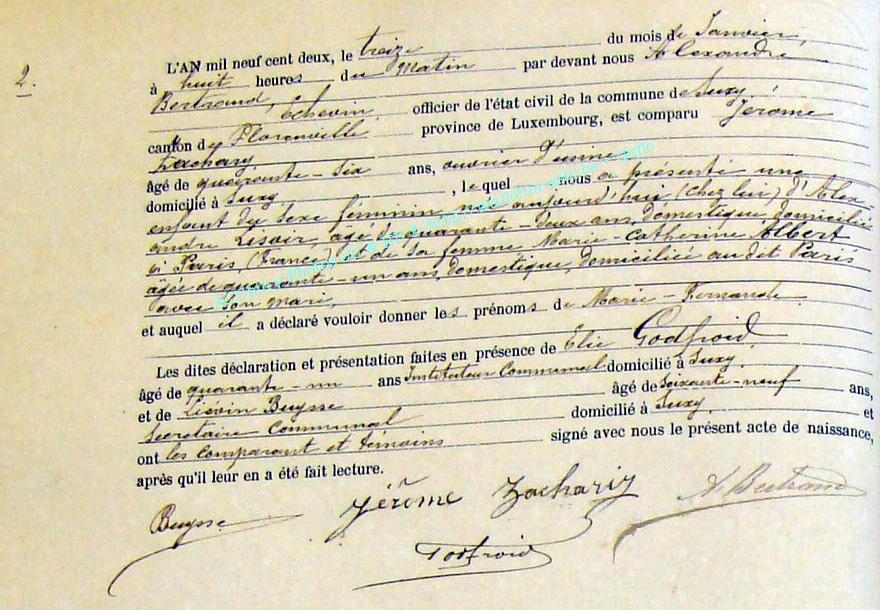 2.
L'AN mil neuf cent deux, le treize du mois de Janvier,
à huit heures du matin par devant nous Alexandre
Bertrand, Echevin, officier de l'état civil de la commune de Suxy,
canton de Florenville province de Luxembourg, est comparu Jérôme
Zachary
âgé de quarante-six ans, ouvrier d'usine
domicilié à Suxy, , lequel nous a présenté une
enfant du sexe féminin née aujourd'hui (chez lui) d'Alex-
andre Lisoir, âgé de quarante-deux ans, domestique, domicilié
à Paris, (France) et de sa femme Marie-Catherine Albert
âgée de quarante-un ans, domestique, domiciliée au dit Paris
avec son mari,
et auquel il a déclaré vouloir donner les prénoms de Marie-Fernande
Les dites déclaration et présentation faites en présence de Elie Godfroid,
âgé de quarante-un ans Instituteur Communal domicilié à Suxy,
et de Buysse âgé de soixante-neuf ans,
Secrétaire Communal domicilié à Suxy, et
ont les comparant et témoins signé avec nous le présent acte de naissance,
après qu'il leur en a été fait lecture.
Buysse Jérôme Zachariy A. Bertrand
Godfroid